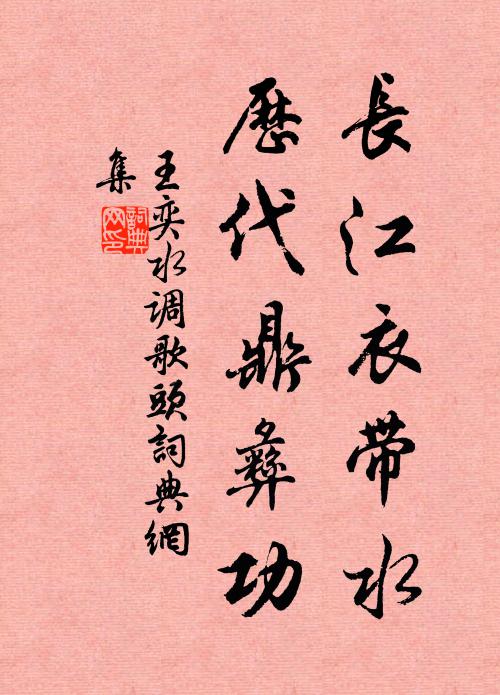 長江衣帶水
歷代鼎彝功
王奕水调歌頭詞典網
集
詞典
网印